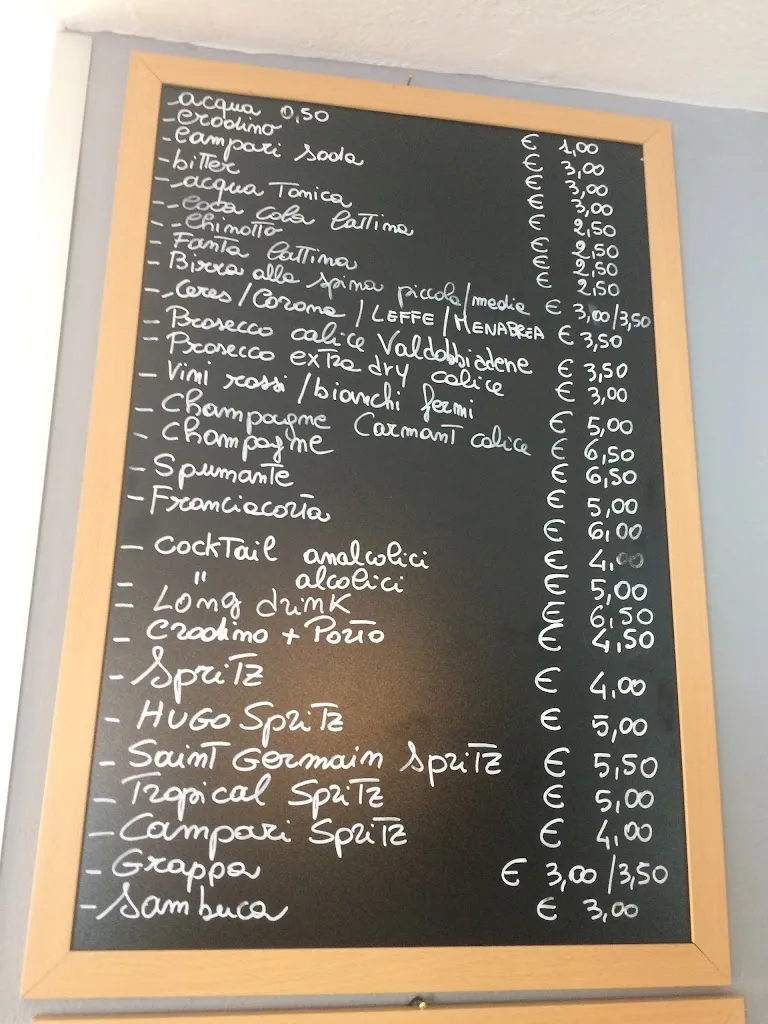 - acqua 0,50 € 1,00
- crodino € 3,00
- campari soda € 3,00
- bitter € 3,00
- acqua Tonica € 2,50
- coca cola lattina € 2,50
- chinotto € 2,50
- Fanta lattina € 2,50
- Birra alla spina piccola/media € 3,00/3,50
- Ceres/Corona/LEFFE/MENABREA € 3,50
- Prosecco calice Valdobbiadene € 3,50
- Prosecco extra dry calice € 3,00
- Vini rossi/bianchi fermi € 5,00
- Champagne Carmant calice € 6,50
- Champagne € 6,50
- Spumante € 5,00
- Franciacorta € 6,00
- cockTail analcolici € 4,00
- " alcolici € 5,00
- Long drink € 6,50
- Crodino + Porto € 4,50
- Spritz € 4,00
- HUGO Spritz € 5,00
- Saint Germain Spritz € 5,50
- Tropical Spritz € 5,00
- Campari Spritz € 4,00
- Grappa € 3,00/3,50
- Sambuca € 3,00